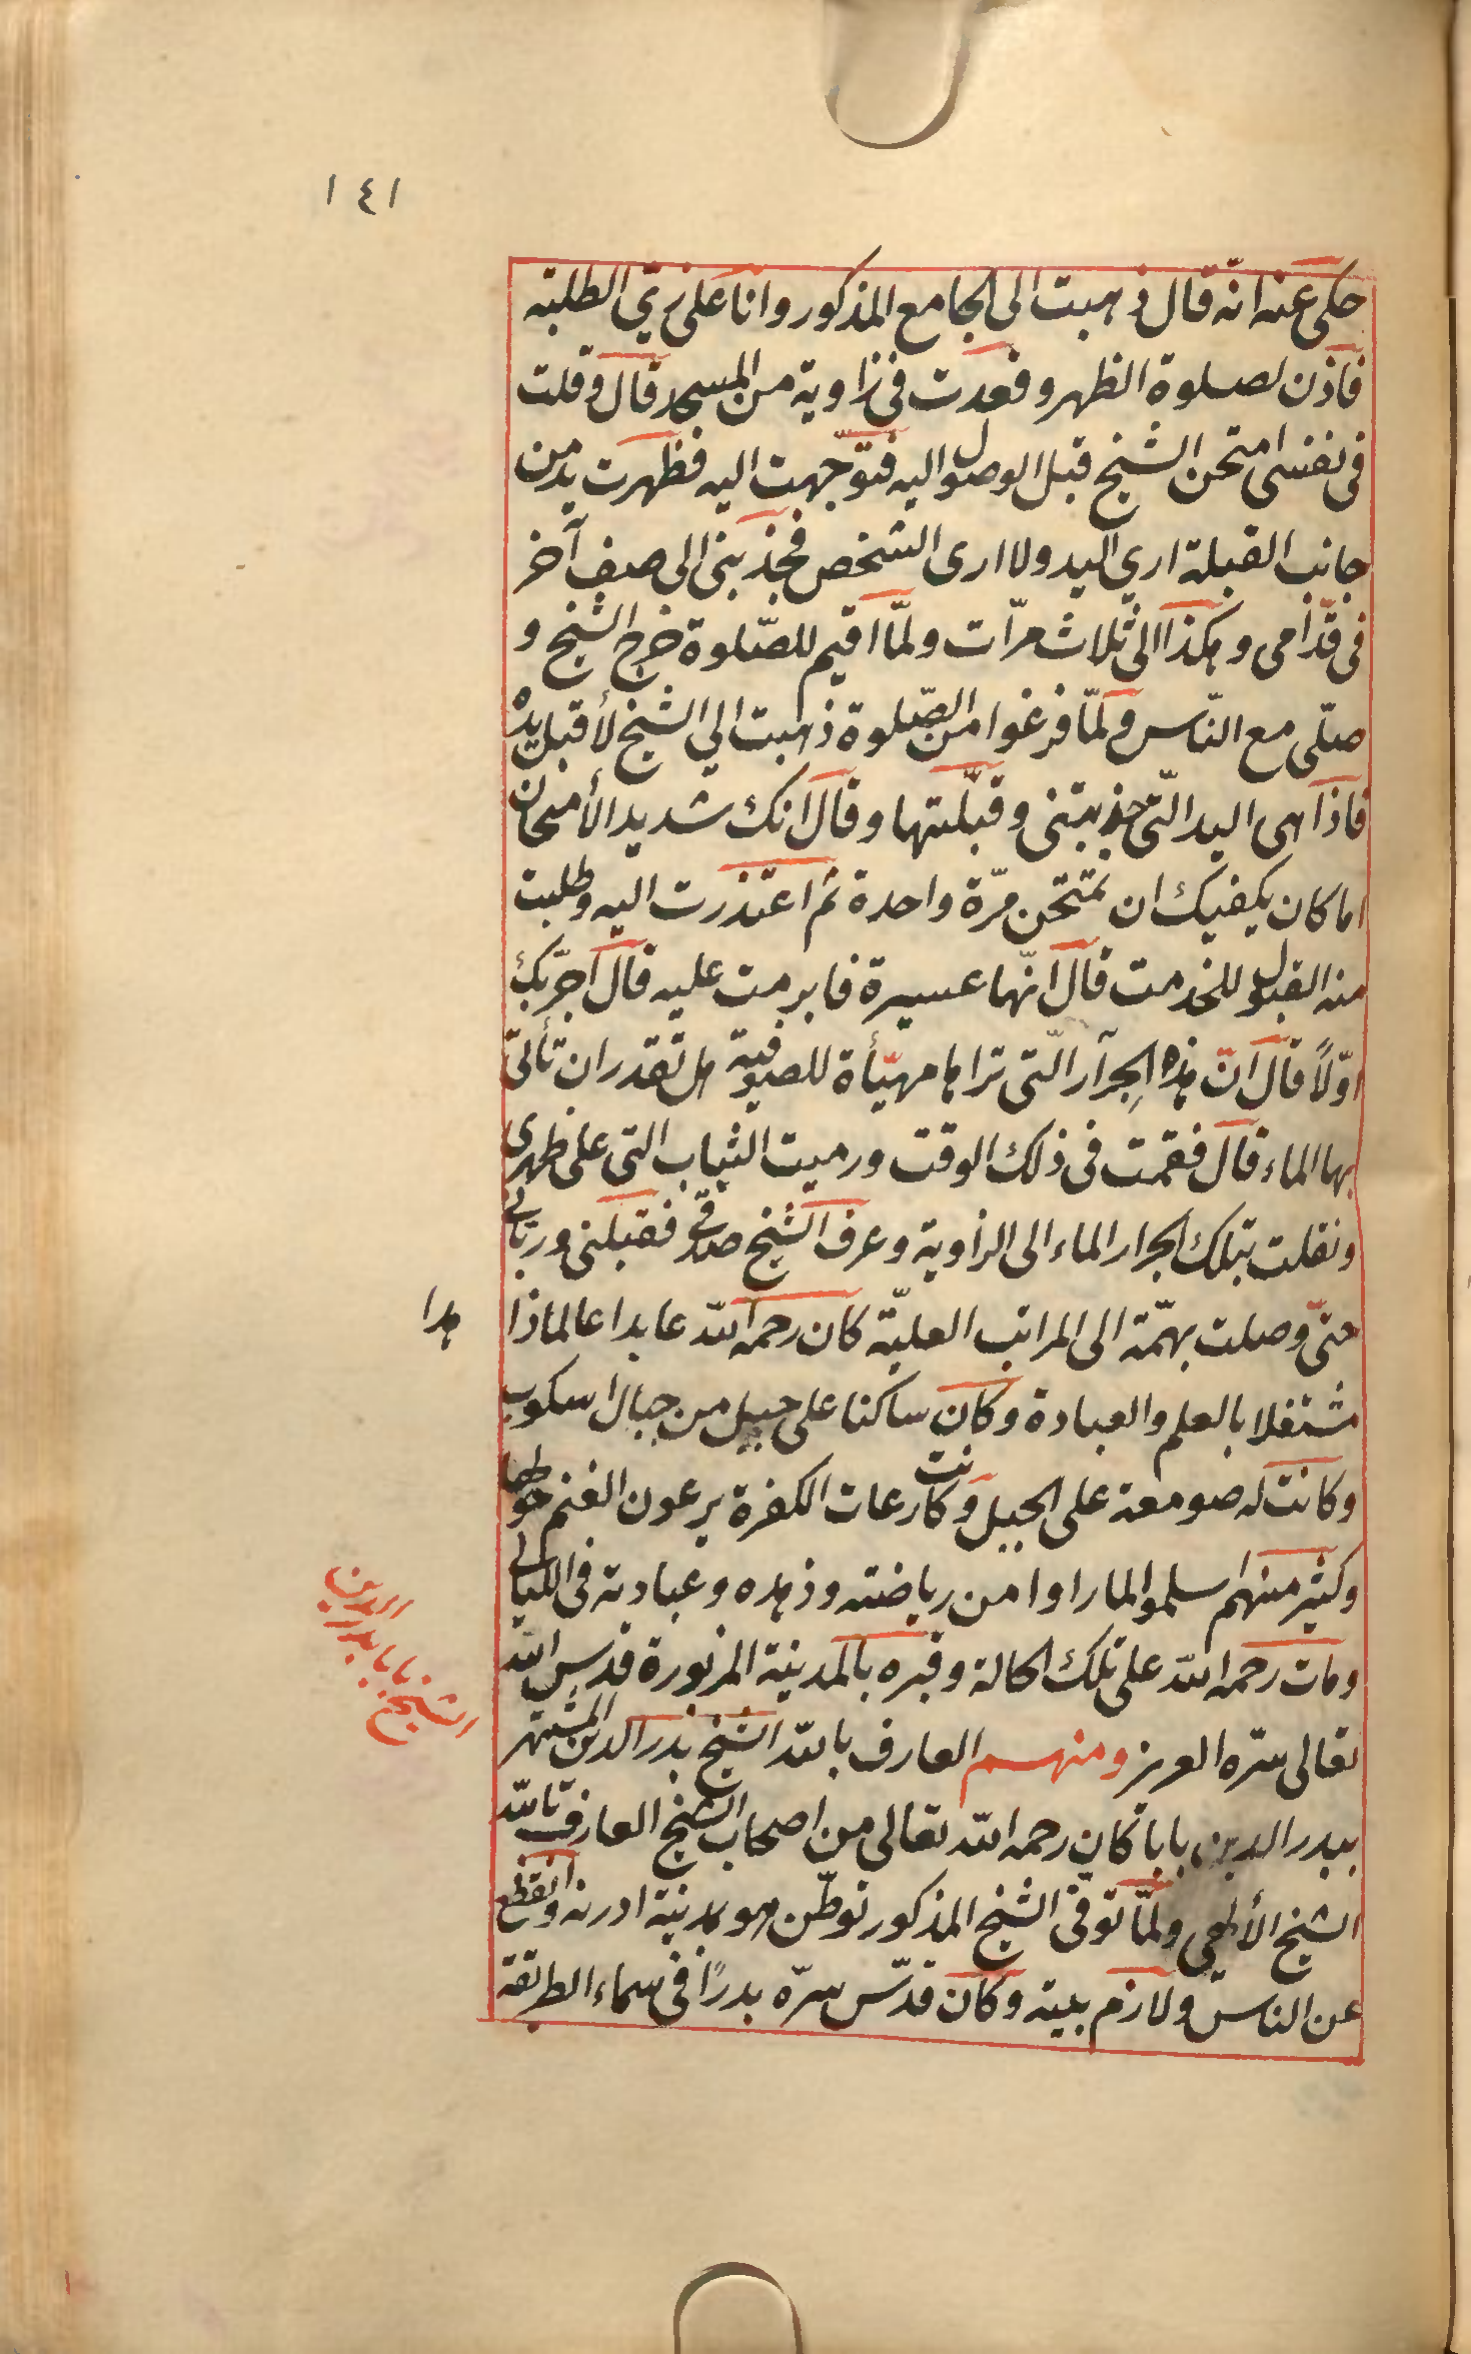 ١٤١
حكى عنه انّه قال ذهبت الى الجامع المذكور وانا على زيّ الطلبة
فاذن لصلوة الظهر وقعدت فى زاوية من المسجد قال وقلت
فى نفسى امتحن الشيخ قبل الوصول اليه فتوّجهت اليه فظهرت يد من
جانب القبلة ارى اليد ولا ارى الشخص فجذبتنى الى صف آخر
فى قدّامى وهكذا الى ثلاث مرّات ولمّا اقيم للصّلوة خرج الشيخ و
صلّى مع النّاس ولمّا فرغوا من الصّلوة ذهبت الي الشيخ لأقبل يده
فاذا هى اليد الّتى جذبتنى وقبّلتها وقال انك شديد الأمتحان
اما كان يكفيك ان تمتحن مرّة واحدة ثم اعتذرت اليه وطلبت
منه القبول للخدمت قال انّها عسيرة فابرمت عليه قال اجرّبك
اوّلاً قال انّ هذه الجرآر الّتى تراها مهيّأة للصوفية هل تقدر ان تأتى
بها الماء قال فقمت فى ذلك الوقت ورميت الثياب التى على ظهرى
ونقلت بتلك الجرار الماء الى الزاوية وعرف الشيخ صدقى فقبلنى وربّانى
حتىّ وصلت بهمّة الى المراتب العليّة كان رحمه اللّه عابدا عالما ذا
هدا
مشتغلا بالعلم والعبادة وكان ساكنا على جبل من جبال اسكوب
وكانت له صومعة على الجبل وكانت رعات الكفرة يرعون الغنم حولها
وكثير منهم اسلموا لما راوا من رياضته وزهده وعبادته فى الليالى
ومات رحمه اللّه على تلك الحالة وقبره بالمدينة المزبورة قدس اللّه
تعالى سرّه العزيز ومنهم العارف باللّه الشيخ بدر الدين المشتهر
الشيخ بابا بدر الدين
ببدر الدين بابا كان رحمه اللّه تعالى من اصحاب الشيخ العارف باللّه
الشيخ الألهى ولمّا توفى الشيخ المذكور توطّن هو بمدينة ادرنه وانقطع
عن الناس ولازم بيته وكان قدّس سرّه بدرًا فى سماء الطريقة